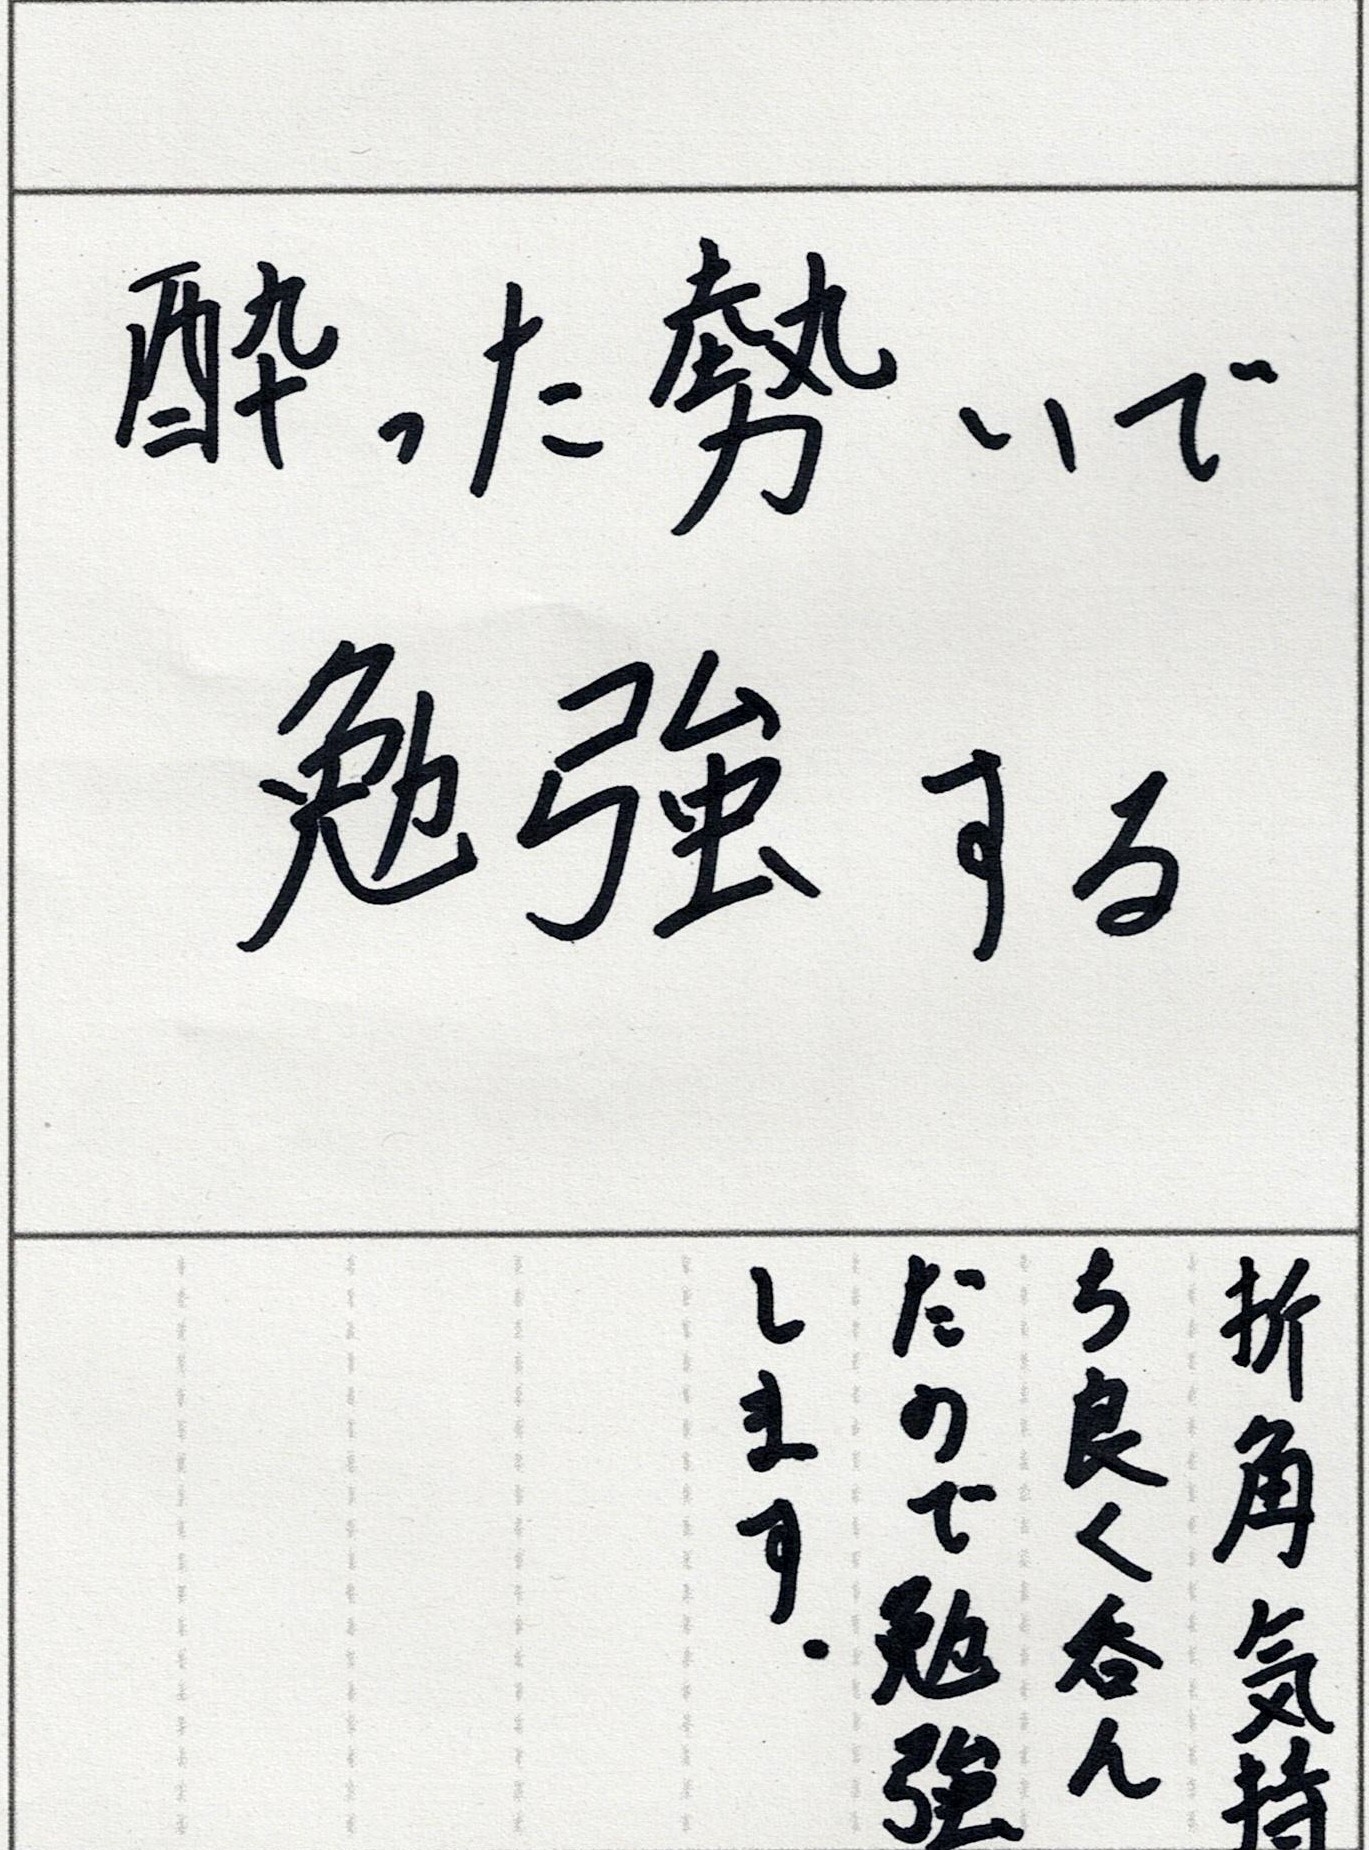 酔った勢いで
勉強する
折角気持
ち良く呑ん
だので勉強
します.